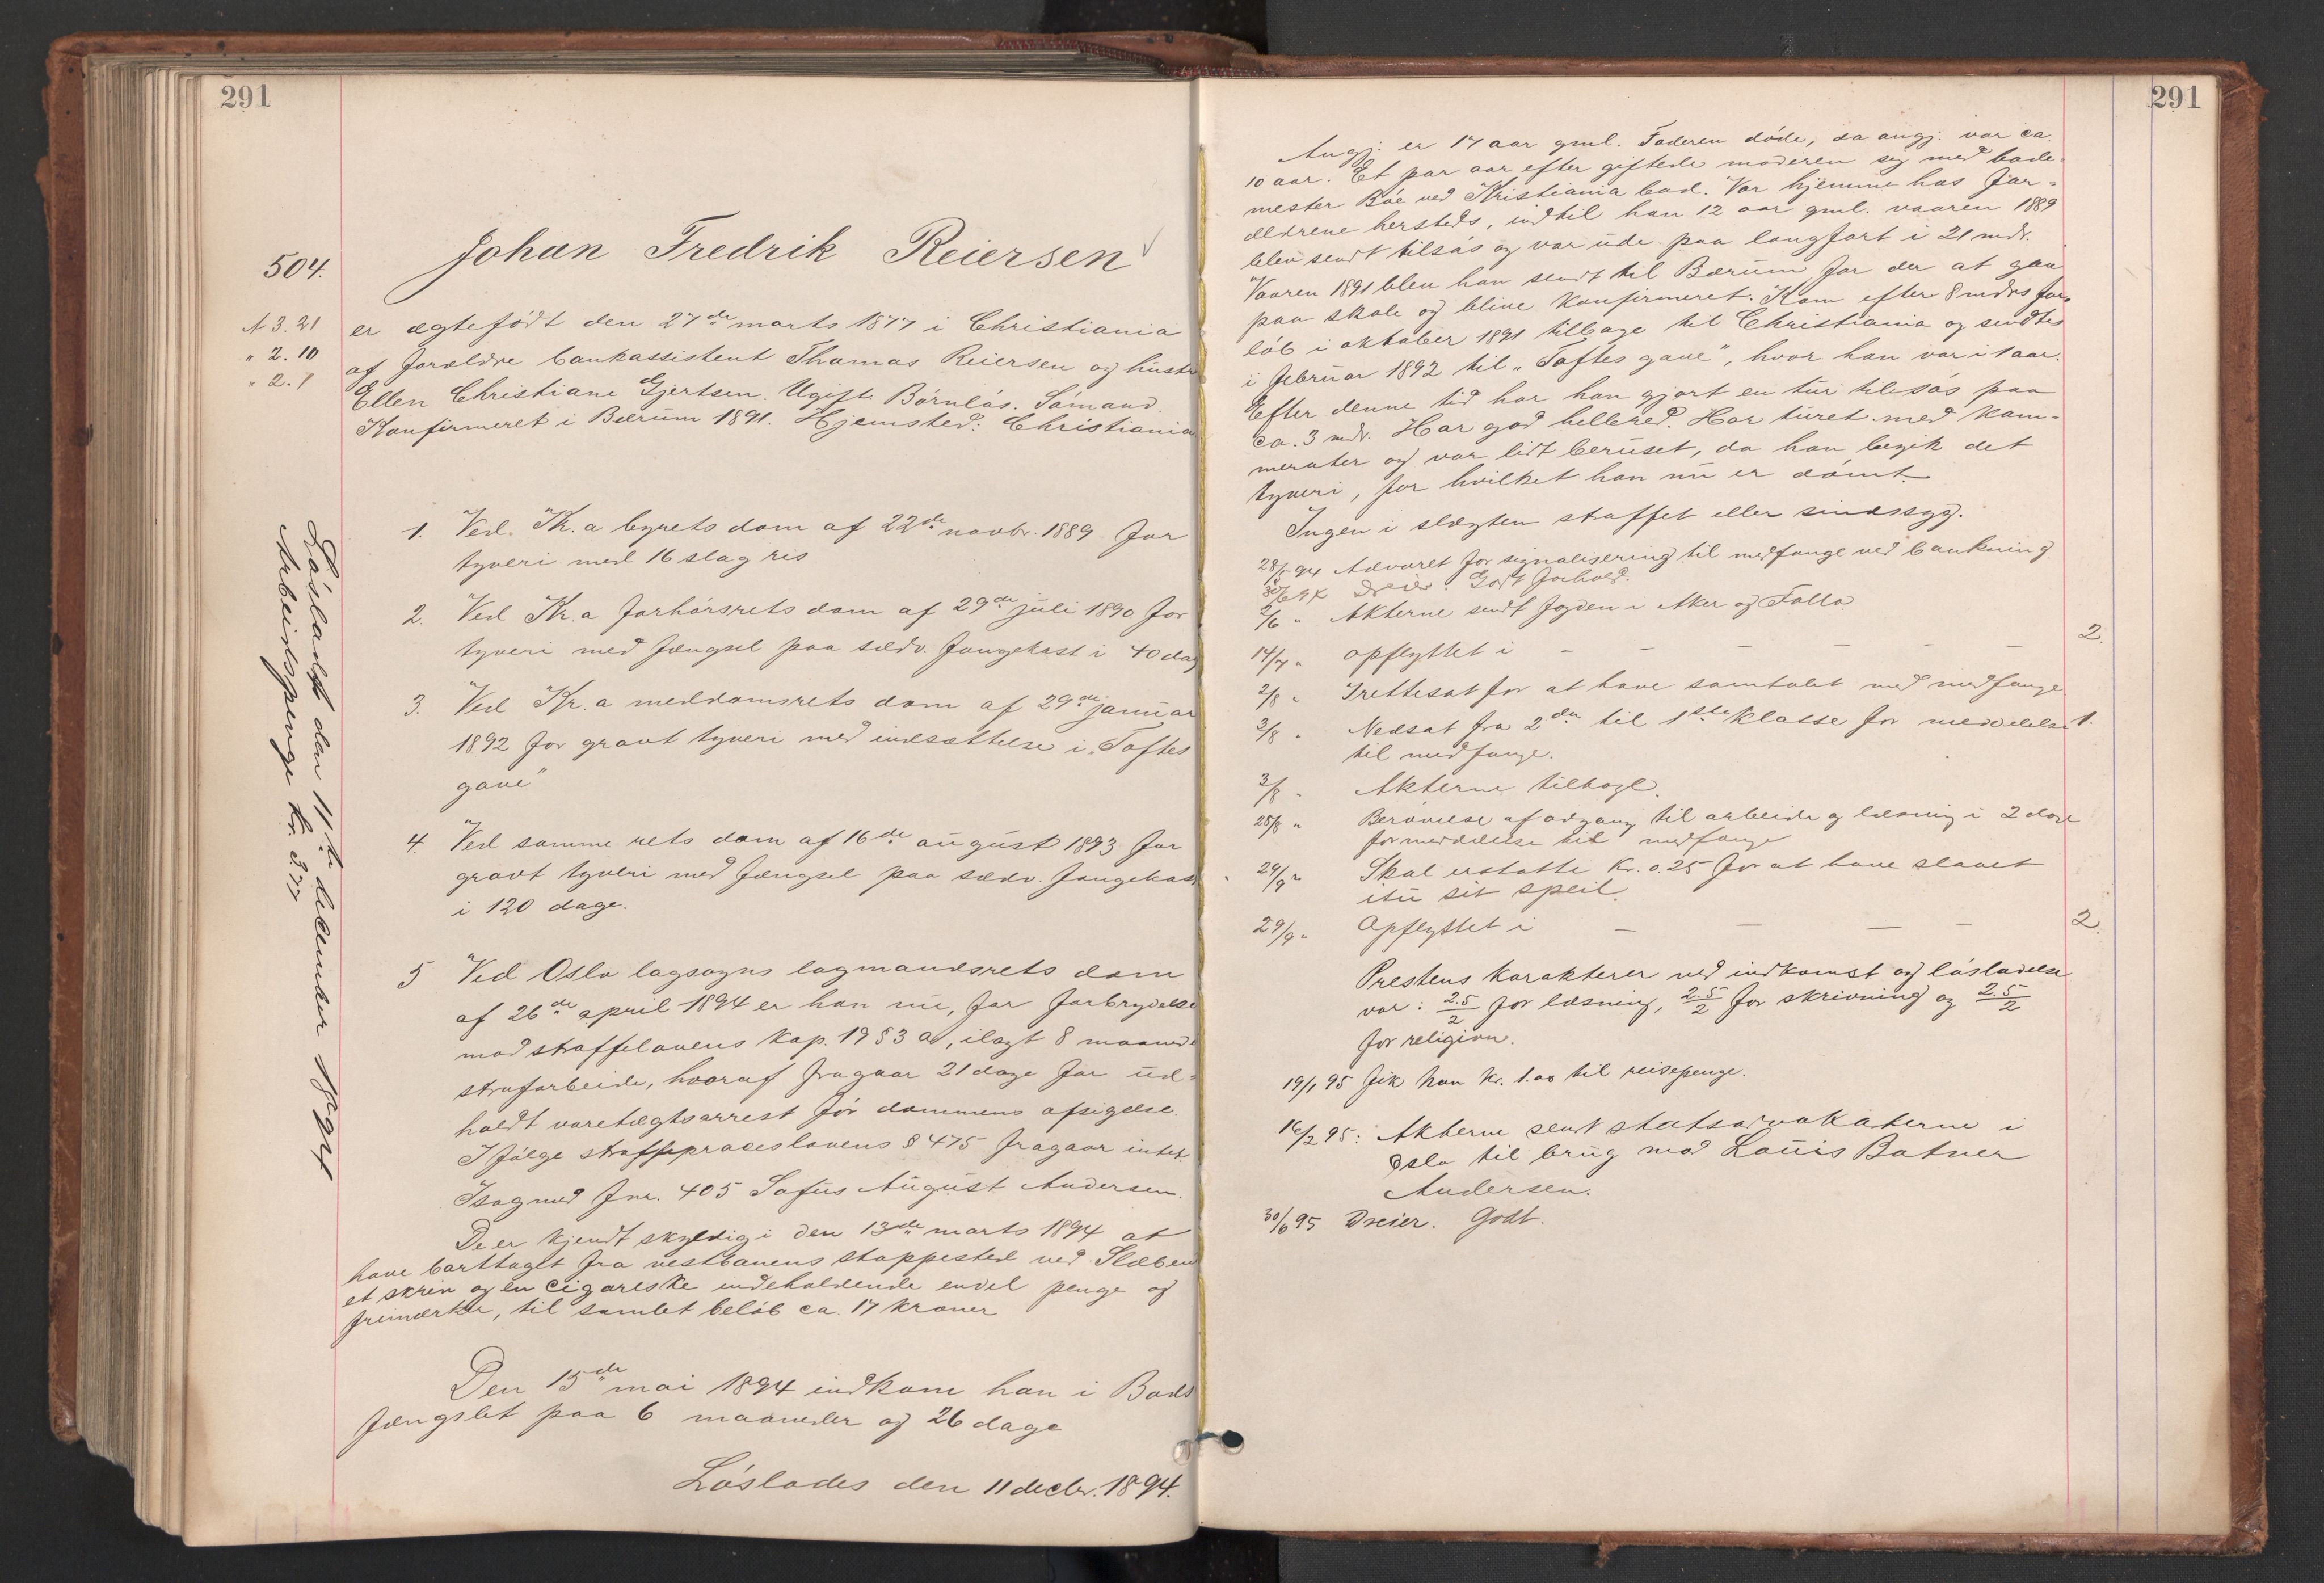 291
504.
Johan Fredrik Reiersen
A 3. 21
" 2. 10
" 2. 1
er ægtefödt den 27de marts 1877 i Christiania
af forældre bankassistent Thomas Reiersen og hustr
Ellen Christiane Gjertsen. Ugift. Börnlös. Sömand.
Konfirmeret i Bærum 1891. Hjemsted: Christiania
1. Ved Kr.a byrets dom af 22de novbr. 1889 for
tyveri med 16 slag ris
2. Ved Kr.a forhörsrets dom af 29de juli 1890 for
tyveri med fængsel paa sædv. fangekost i 40 dag
3. Ved Kr.a meddomsrets dom af 29de januar
1892 for grovt tyveri med indsættelse i „Toftes
gave"
4. Ved samme rets dom af 16de august 1893 for
grovt tyveri med fængsel paa sædv. fangekost
i 120 dage.
5 Ved Oslo lagsogns lagmandsrets dom
af 26de april 1894 er han nu, for forbrydelse
mod straffelovens kap. 19 § 3 a, ilagt 8 maaned
strafarbeide, hvoraf fragaar 21 dage for ud-
holdt varetægtsarrest för dommens afsigelse.
Ifölge straffeproceslovens § 475 fragaar intet.
Isag med fnr. 405 Sofus August Andersen.
De er kjendt skyldig i den 13de marts 1894 at
have borttaget fra vestbanens stoppested ved Slæbend
et skrin og en cigareske indeholdende endel penge og
frimærker, til samlet belöb ca. 17 kroner
Den 15de mai 1894 indkom han i Bods
fængslet paa 6 maaneder og 26 dage
Löslades den 11 decbr. 1894.
Lösladt den 11te december 1894
Arbeidspenge kr. 3.77
291
Angj. er 17 aar gml. Faderen döde, da angj. var ca.
10 aar. Et par aar efter giftede moderen sig med bade-
mester Böe ved Kristiania bad. Var hjemme hos for-
ældrene hersteds, indtil han 12 aar gml. vaaren 1889
blev sendt tilsös og var ude paa langfart i 21 mdr.
Vaaren 1891 blev han sendt til Bærum for der at gaa
paa skole og blive konfirmeret. Kom efter 8 mdrs for-
löb i oktober 1891 tilbage til Christiania og sendtes
i februar 1892 til „Toftes gave", hvor han var i 1 aar.
Efter denne tid har han gjort en tur tilsös paa
ca. 3 mdr. Har god helbred. Har turet med kam-
merater og var lidt beruset, da han begik det
tyveri, for hvilket han nu er dömt.
Ingen i slægten straffet eller sindssyg.
28/5 94 Advaret for signalisering til medfange ved bankning
30/6 94 Dreier. Godt forhold.
2/6 " Akterne sendt fogden i Aker og Follo
14/7 " opflyttet i — — — — — 2.
2/8 " Irettesat for at have samtalet med medfange
3/8 " Nedsat fra 2den til 1ste klasse for meddelelse 1.
til medfange.
3/8 " Akterne tilbage.
28/8 " Berövelse af adgang til arbeide og læsning i 2 dage
for meddelelse til medfange
24/9 " Skal erstatte kr. 0.25 for at have slaaet
itu sit speil.
29/9 " Opflyttet i — — — 2.
Prestens karakterer ved indkomst og lösladelse
var: 2.5/2 for læsning, 2.5/2 for skrivning og 2.5/2
for religion.
19/1 95 fik han kr. 1.00 til reisepenge.
16/2 95: Akterne sendt statsadvokaterne i
Oslo til brug mod Louis Botner
Andersen.
30/6 95 Dreier. Godt.